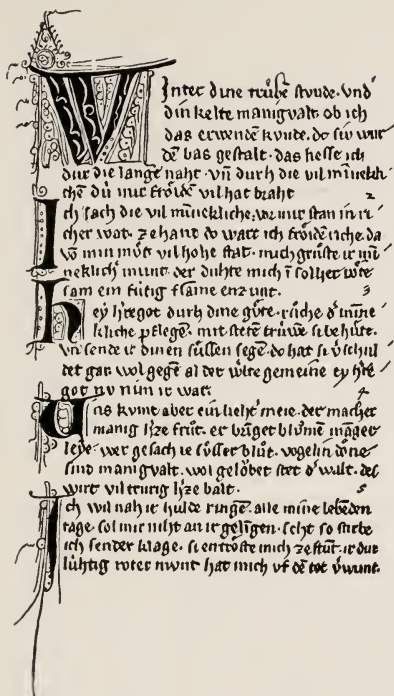 Winter dine trůbē stvnde· Vnd
din kelte manigvalt· ob ich
das erwendē kvnde· do siv wur
dē bas gestalt· das hesse ich
dur die lange naht· vñ durh die vil miñekli
chē dů mir frȯidē vil hat braht 2
Ich sach die vil miñekliche, vor mir stan in ri
cher wat· zehant do wart ich frȯidē riche· da
vō min můt vil hohe stat· mich grůste ir miñ
neklich munt· der duhte mich ī solher wȯte
sam ein fúrig fſame enzunt· 3
hey h̄regot durh dine gůte· růche d' miñe
kliche pflegē· mit stetē trúwē si behůte·
vñ sende ir dinen sůssen segē· do hat si v'schul
det gar wol gegē al der w̄lte gemeine ey h̄re
got nv nim ir war· 4
Uns kvmt aber ein lieht' meie· der machet
manig h̄ze frůt· er bringet blůmē māger
leye· wer gesach ie sůsser blůt· vogelin dȯne
sint manigvalt· wol gelȯbet stet d' walt· des
wirt vil trurig h̄ze balt· 5
Ich wil nah ir hulde ringē· alle mine lebēden
tage· sol mir niht an ir gelīgen· seht so stirbe
ich sender klage· si entrȯste mich zestūt· ir dur
lúhtig roter mvnt hat mich vf dē tot v'wunt·